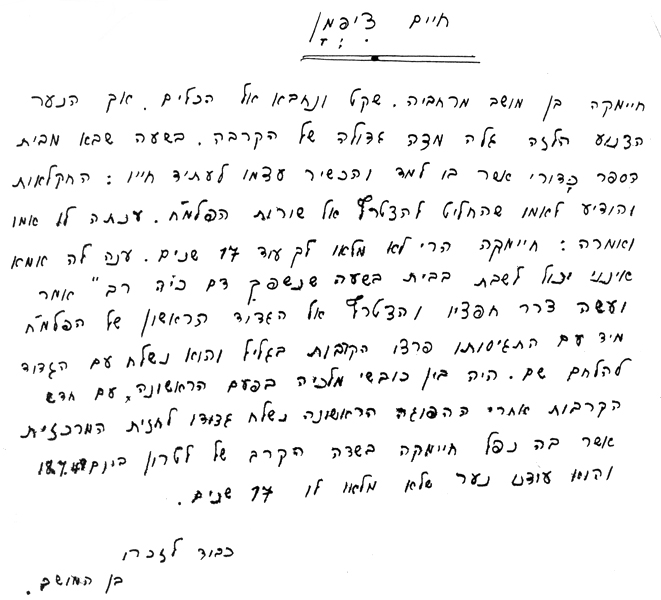 חיים ציפמן
חיימקה בן מושב מרחביה. שקט ונחבא אל הכלים. אך הנער
הצנוע הלזה גלה מדה גדולה של הקרבה. בשעה שבא מבית
הספר כדורי אשר בו למד והכשיר עצמו לעתיד חייו : החקלאות
והודיע לאמו שהחליט להצטרף אל שורות הפלמ"ח. ענתה לו אמו
ואמרה : חיימקה הרי לא מלאו לך עוד 17 שנים. ענה לה אמא
אינני יכול לשבת בבית בשעה שנשפך דם כ"ה רב" אמר
ועשה צרר חפציו והצטרף אל הגדוד הראשון של הפלמ"ח
מיד עם התגיסותו פרצו הקרבות בגליל והוא נשלח עם הגדוד
להלחם שם. היה בין כובשי מלכיה בפעם הראשונה, עם חדש
הקרבות אחרי ההפוגה הראשונה נשלח גדודו לחזית המרכזית
אשר בה נפל חיימקה בשדה הקרב של לטרון ביום 18.7.48
והוא עודנו נער שלא מלאו לו 17 שנים.
כבוד לזכרו
בן המושב.